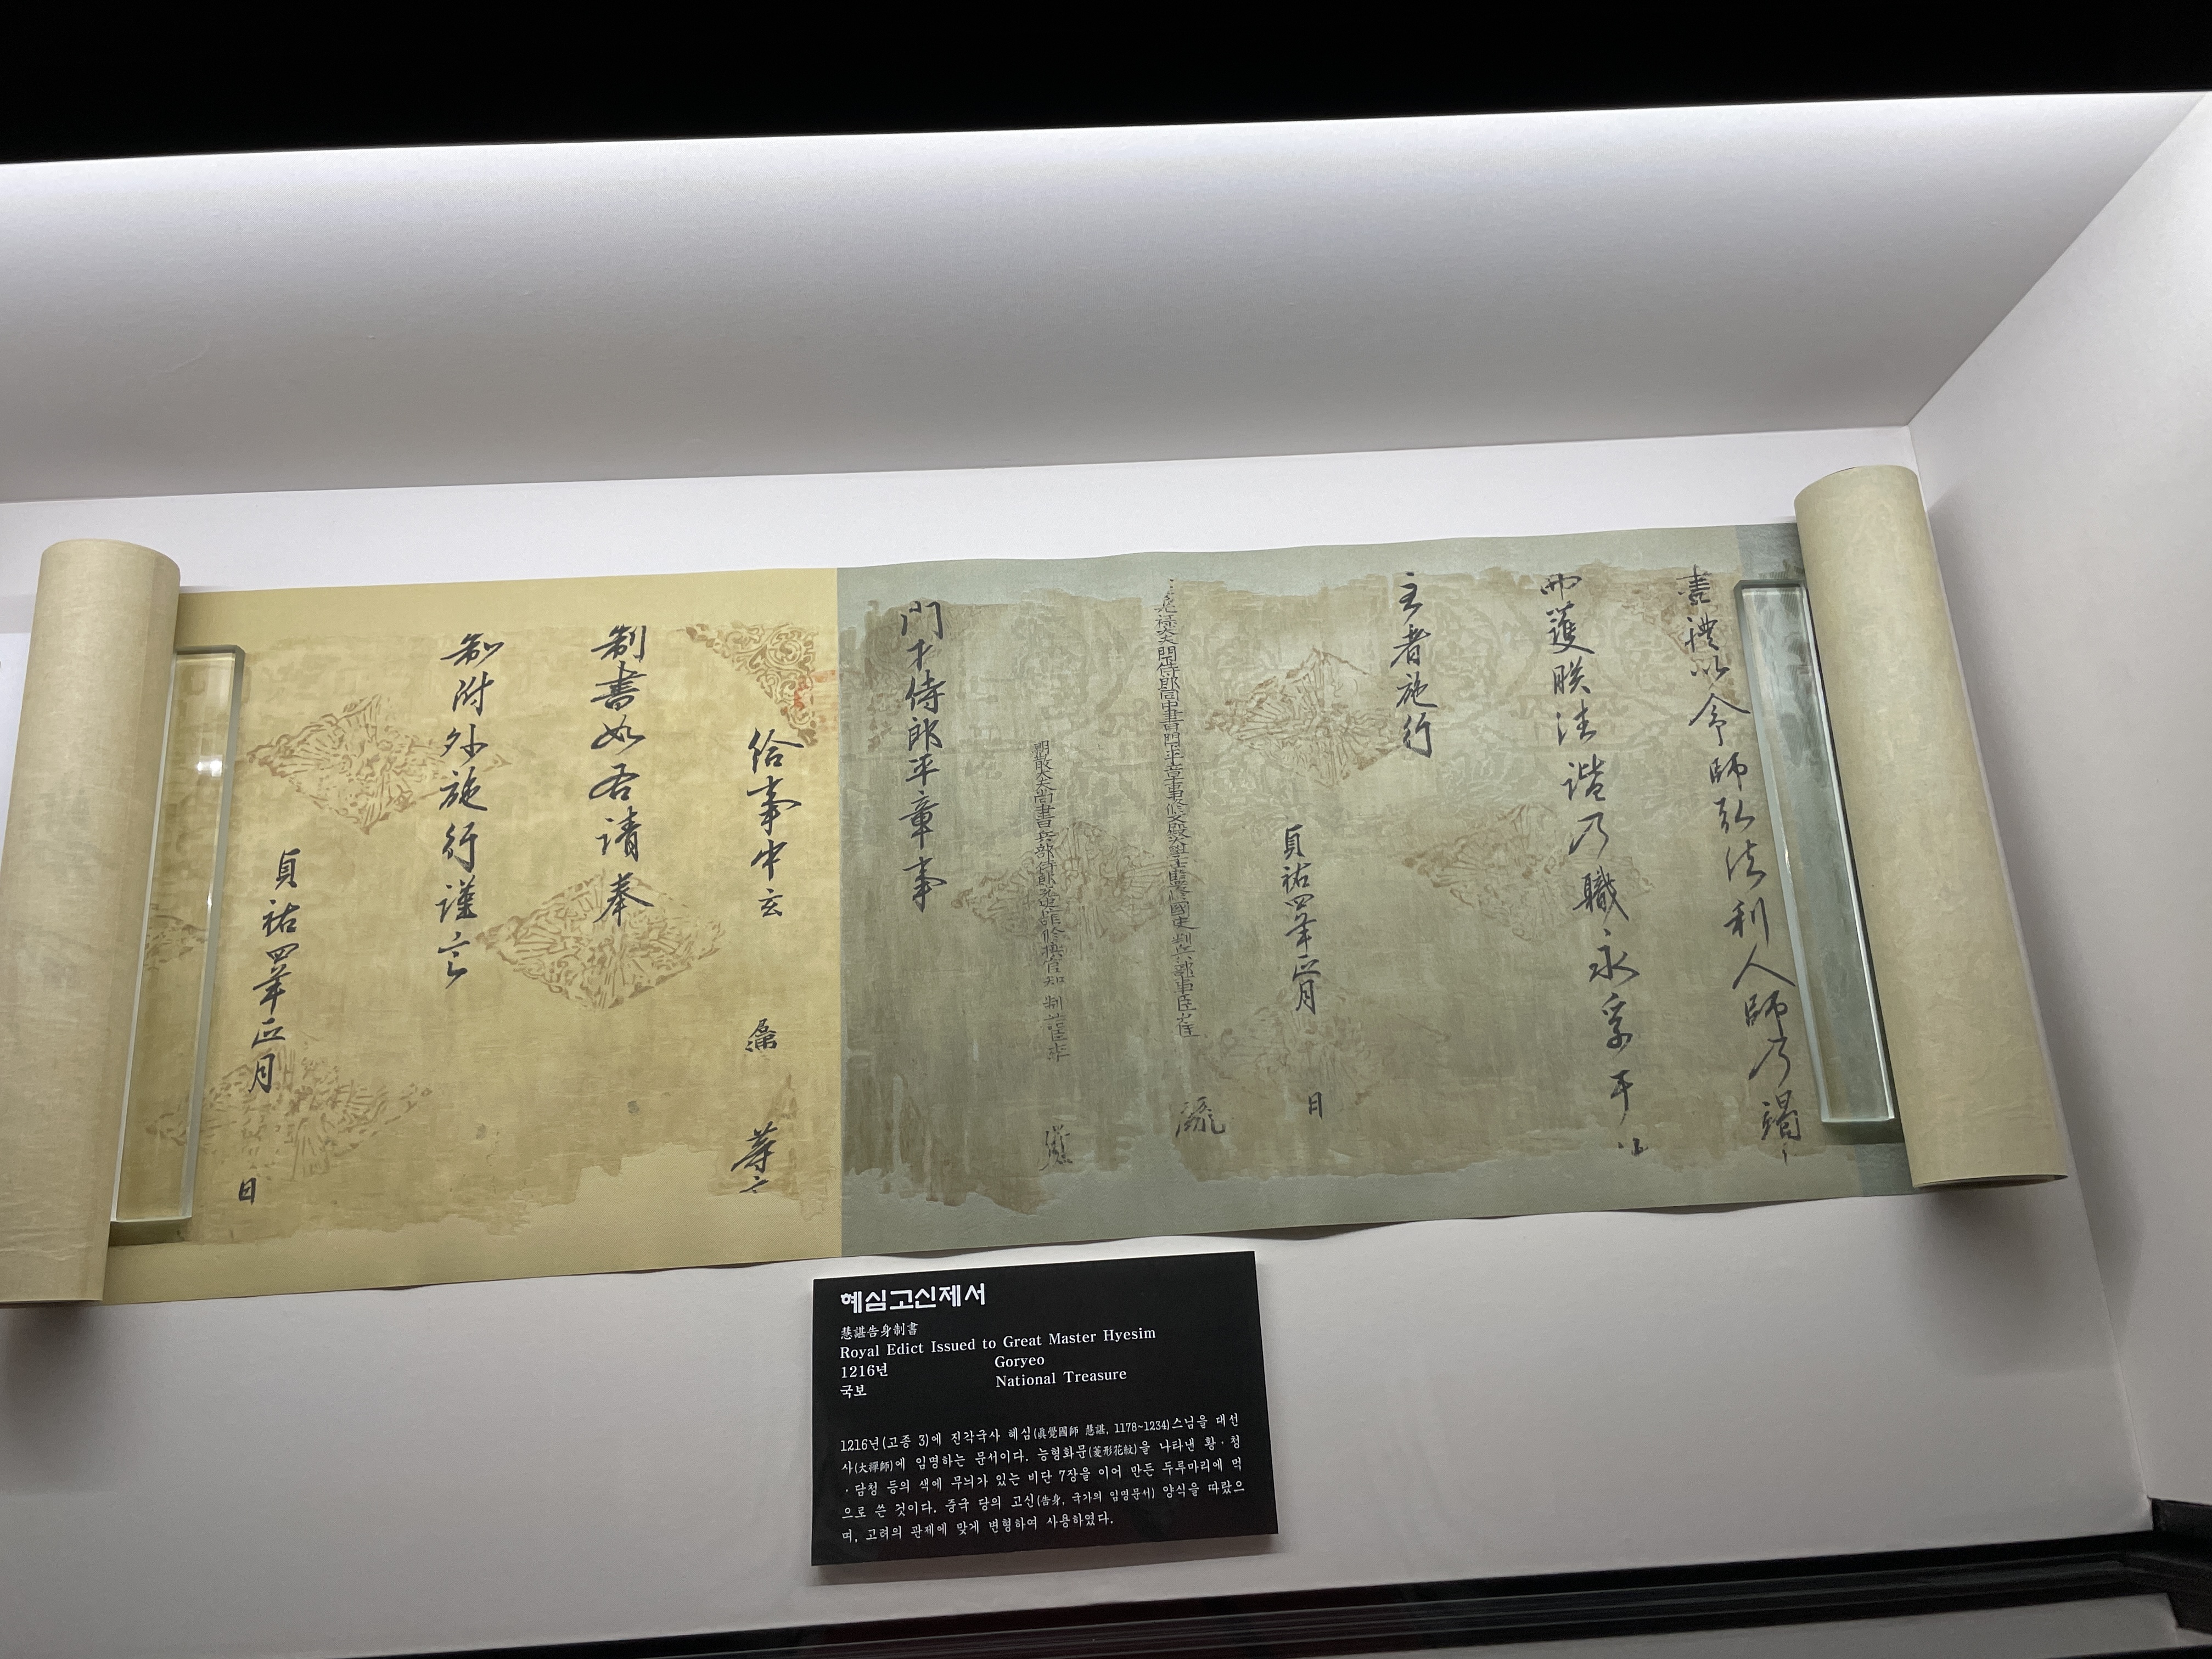 盡禮以今師弘法利人師乃竭
而護朕法諧乃職永孚于
主者施行
貞祐四年正月 日
光祿大夫門侍郎同中書門平章事修文殿大學士監修國史判兵部事臣崔
朝散大夫尙書兵部侍郎充史館修撰官知 制誥臣李
門下侍郎平章事
給事中玄
制書如右請奉
制附外施行謹言
貞祐四年正月 日
혜심고신제서
慧諶告身制書
Royal Edict Issued to Great Master Hyesim
1216년 Goryeo
국보 National Treasure
1216년(고종 3)에 진각국사 혜심(眞覺國師 慧諶, 1178~1234)스님을 대선
사(大禪師)에 임명하는 문서이다. 능형화문(菱形花紋)을 나타낸 황·청
·담청 등의 색에 무늬가 있는 비단 7장을 이어 만든 두루마리에 먹
으로 쓴 것이다. 중국 당의 고신(告身, 국가의 임명문서) 양식을 따랐으
며, 고려의 관제에 맞게 변형하여 사용하였다.